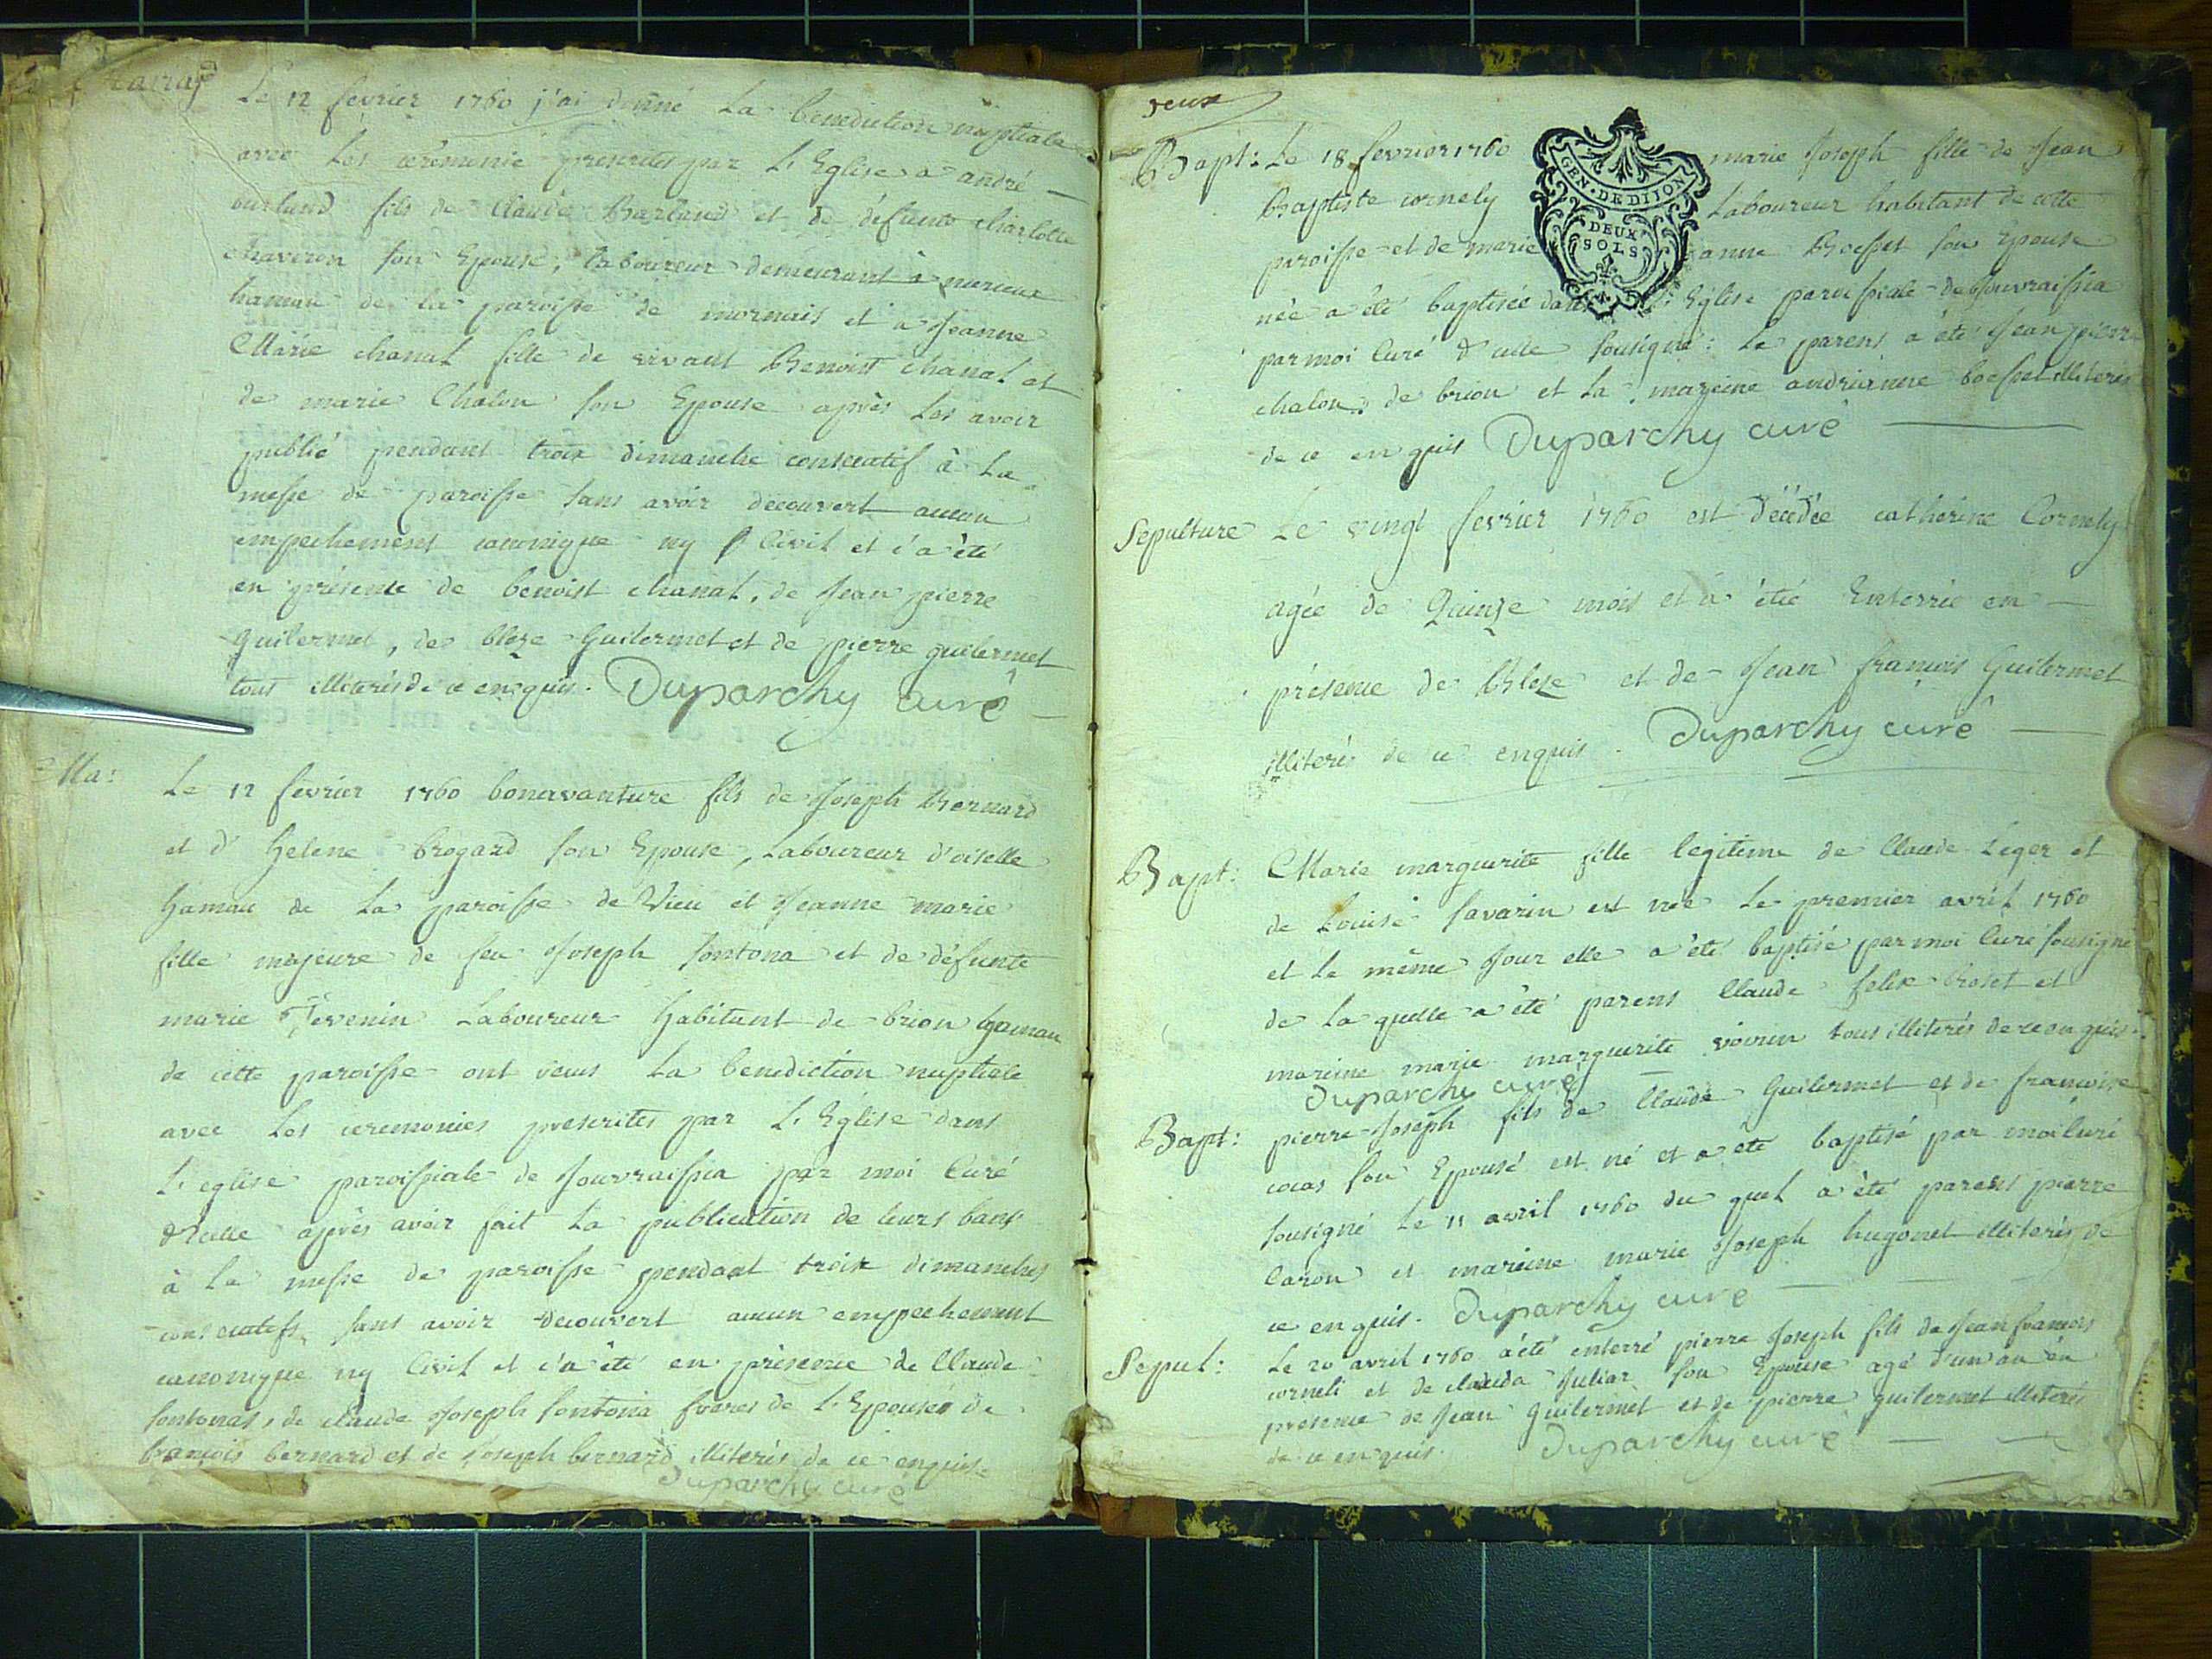 Le 12 fevrier 1760 j'ai donné La benediction nuptiale
avec Les ceremonie prescrites par L'Eglise a andré
burlund fils de Claude Barlund et de defunte charlotte
chaveron son Epouse, laboureur demeurant à
hamau de la paroisse de mornais et a Jeanne
Marie chanal fille de vivant Benoist chanal et
de marie Chalon son Epouse après Les avoir
publié pendant trois dimanche consecutif à La
messe de paroisse sans avoir decouvert aucun
empechement canonique ny Civil et c'a été
en présence de benoist chanal, de Jean pierre
guilermet, de bleze Guilermet et de pierre guilermet
tous illiterés de ce enquis. Duparchy curé
Ma: Le 12 fevrier 1760 bonavanture fils de Joseph Bernard
et d'helene brogard son Epouse, Laboureur d'oiselle
hamau de La paroisse de Vieu et Jeanne marie
fille majeure de feu Joseph fontona et de défunte
marie Tevenin Laboureur habitant de brion hamau
de cette paroisse ont reçus La benediction nuptiale
avec Les ceremonies prescrites par L'Eglise dans
L'eglise paroissiale de Jouvraissia par moi Curé
d'icelle après avoir fait La publication de leurs bans
à La messe de paroisse pendant trois dimanches
consecutifs sans avoir decouvert aucun empechement
canonique ny Civil et c'a été en présence de Claude
fontonas, de claude Joseph fontona freres de L'Epouse de
françois bernard et de Joseph bernard illiterés de ce enquis
Duparchy curé
Bapt: Le 18 fevrier 1760 marie Joseph fille de Jean
Baptiste cornely Laboureur habitant de cette
paroisse et de marie anne Boesset son Epouse
née a été baptisée dans L'Eglise paroissiale de Jouvraissia
par moi Curé d'icelle sousigné: Le parens a été Jean pierre
chalon de brion et La mareine andrianne boesset illiterés
de ce enquis Duparchy curé
GEN. DE DIJON
DEUX
SOLS
Sepulture Le vingt fevrier 1760 est décédée catherine Cornely
agée de Quinze mois et a étté Enterrée en
présence de Bleze et de Jean françois Guilermet
illiterés de ce enquis. Duparchy curé
Bapt: Marie marguerite fille legitime de Claude Leger et
de Louise Savarin est née Le premier avril 1760
et Le même Jour elle a été baptisé par moi Curé sousigné
de La quelle a été parens Claude felix broset et
mareine marie marguerite tous illiterés de ce enquis.
Duparchy curé
Bapt: pierre Joseph fils de Claude Guilermet et de francoise
cocas son Epouse est né et a été baptisé par moi Curé
sousigné Le 11 avril 1760 du quel a été parens pierre
Caron et mareine marie Joseph hugonet illiterés de
ce enquis. Duparchy curé
Sepul: Le 20 avril 1760 a été enterré pierre Joseph fils de Jean francois
corneli et de clauda Juliar son Epouse agé d'un an en
presence de Jean Guilermet et de pierre guilermet illiterés
de ce enquis. Duparchy curé